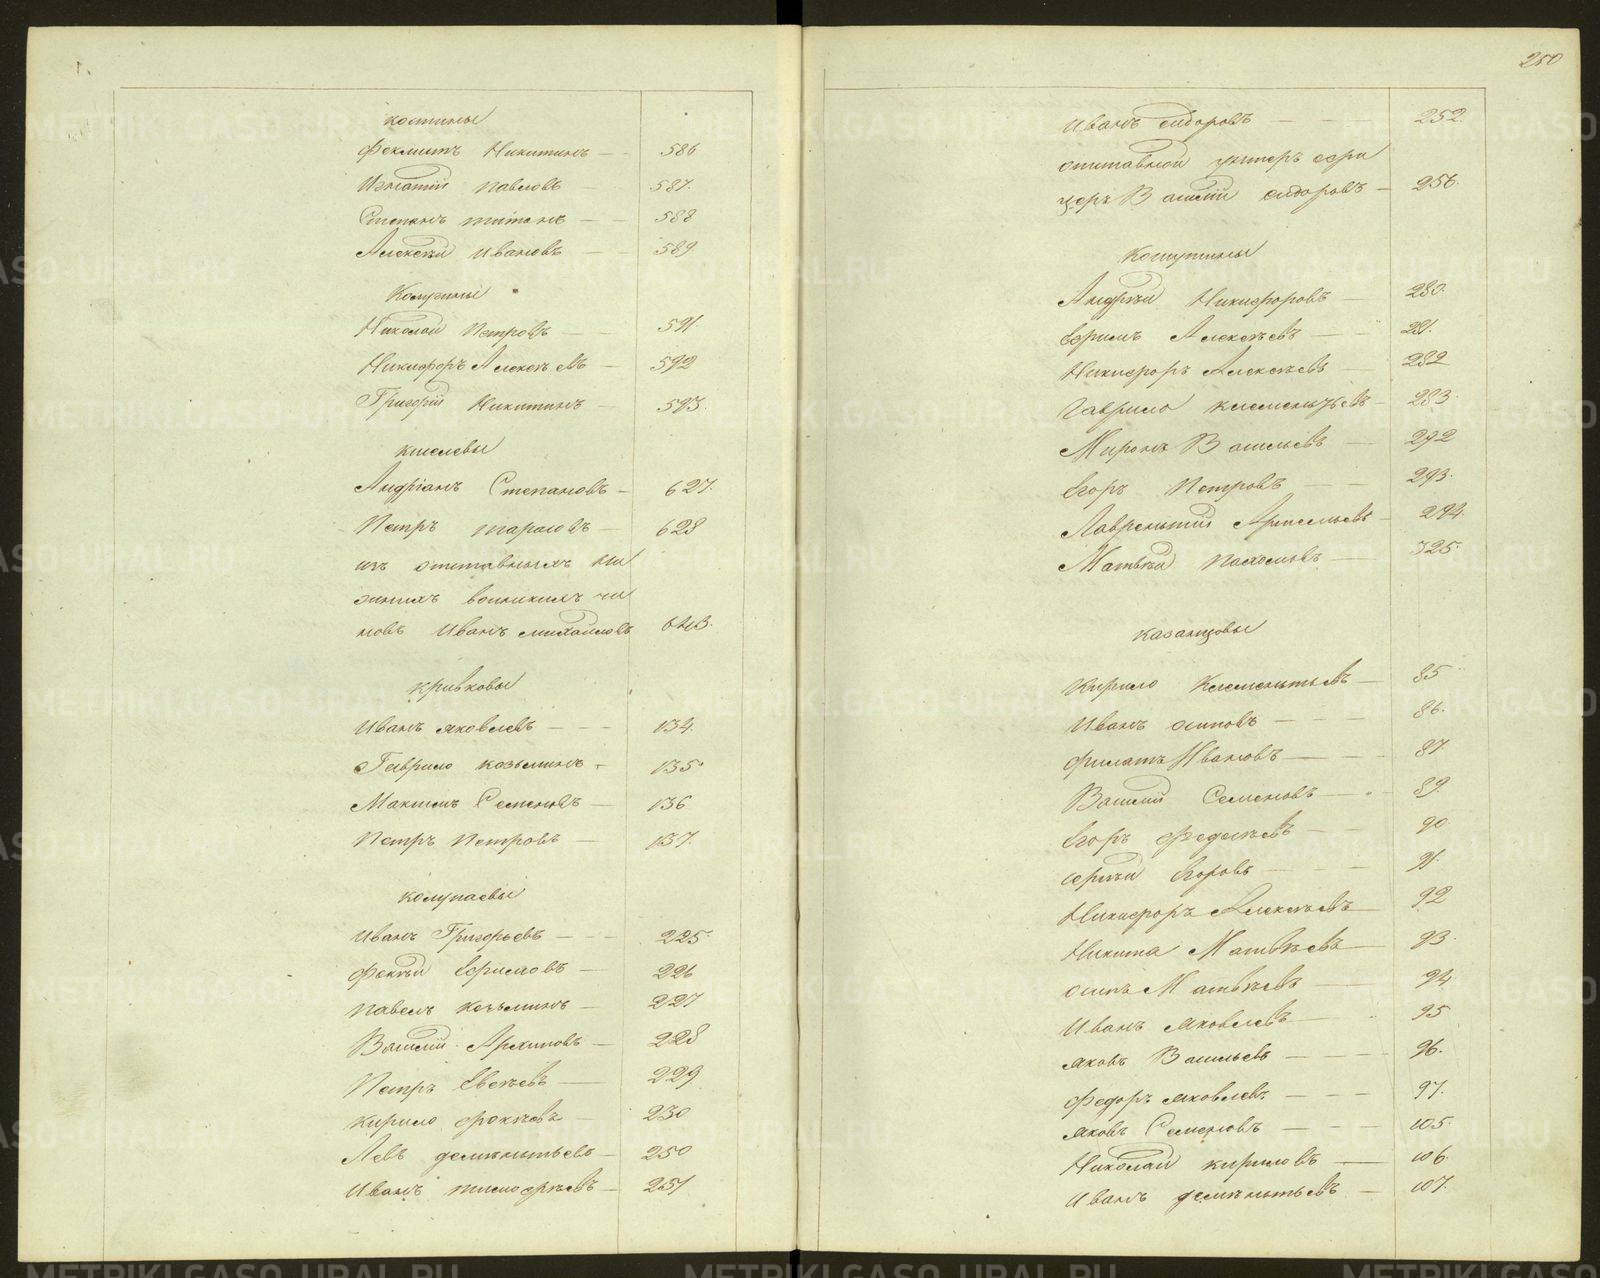 Костины
Феклистъ Никитинъ — 586
Игнатій Павловъ — 587.
Степанъ Титовъ — — 588
Алексѣй Ивановъ — — 589
Колугины
Николай Петровъ — — 591
Никифоръ Алексѣевъ — 592
Григорій Никитинъ — 593.
Киселевы
Андріанъ Степановъ — 627.
Петръ Тарасовъ — 628
изъ отставныхъ ни
жнихъ воинскихъ чи
новъ Иванъ Михайловъ 643.
Кривковы
Иванъ Яковлевъ — — — 134.
Гаврило Козьминъ — 135
Максимъ Семеновъ — 136
Петръ Петровъ — 137.
Колупаевы
Иванъ Григорьевъ — — 225
Фокѣй Ефимовъ — 226
Павелъ Козьминъ — 227
Василій Архиповъ — 228
Петръ Евсѣевъ — 229
Кирило Фокѣевъ — 230
Левъ Дементьевъ — 250
Иванъ Тимофѣевъ — 251
250
Иванъ Сидоровъ — — — 252.
отставной унтеръ офи
церъ Василій Сидоровъ — 256.
Кошутины
Андрей Никифоровъ — 280.
Ефимъ Алексѣевъ — — 281.
Никифоръ Алексѣевъ — 282
Гаврило Клементьевъ — 283.
Миронъ Васильевъ — 292
Егоръ Петровъ — — 293.
Лаврентій Арсеньевъ — 294.
Матвѣй Пахомовъ — 325.
Казанцовы
Кирило Клементьевъ — 85
Иванъ Осиповъ — — — 86.
Филатъ Ивановъ — — 87.
Василій Семеновъ — 89.
Егоръ Федосѣевъ — — 90
Ефимъ Егоровъ — — — 91.
Никифоръ Алексѣевъ — 92
Никита Матвѣевъ — 93.
Осипъ Матвѣевъ — 94
Иванъ Яковлевъ — 95
Яковъ Васильевъ — — — 96.
Федоръ Яковлевъ — — — 97.
Яковъ Семеновъ — — — 105.
Николай Кириловъ — 106.
Иванъ Дементьевъ — 107.
METRIKI.GASO-URAL.RU